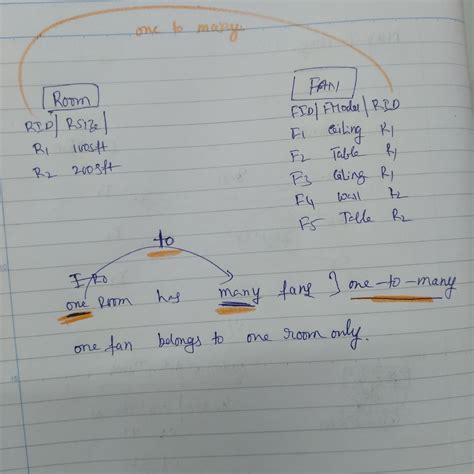 one to many
Room
RID | RSize |
R1 100sft
R2 200sft
FAN
FID | FModel | RID
F1 Ceiling R1
F2 Table R1
F3 Ceiling R1
F4 Wall R2
F5 Table R2
to
one room has many fans } one-to-many
one fan belongs to one room only.